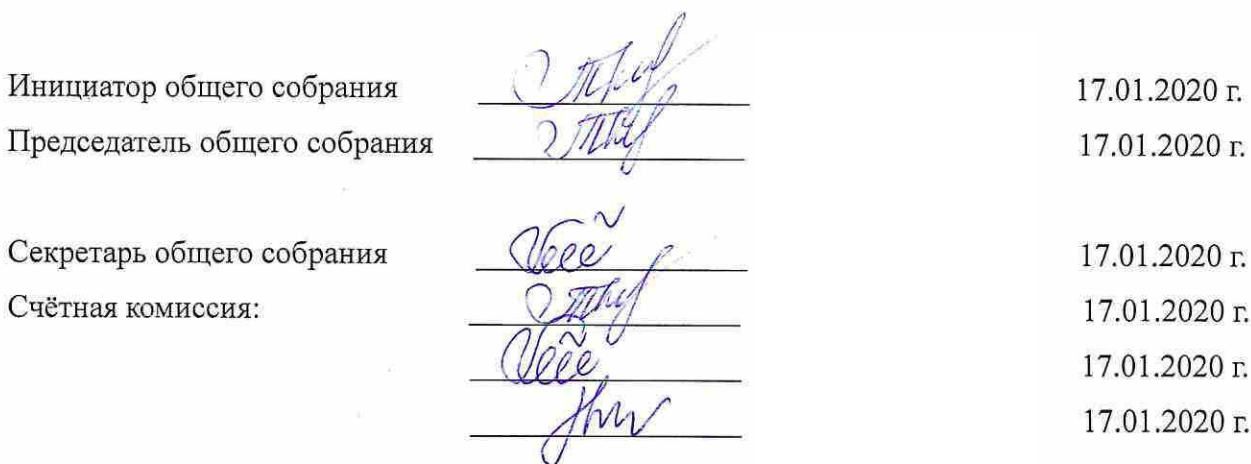 Инициатор общего собрания 17.01.2020 г.
Председатель общего собрания 17.01.2020 г.
Секретарь общего собрания 17.01.2020 г.
Счётная комиссия: 17.01.2020 г.
17.01.2020 г.
17.01.2020 г.